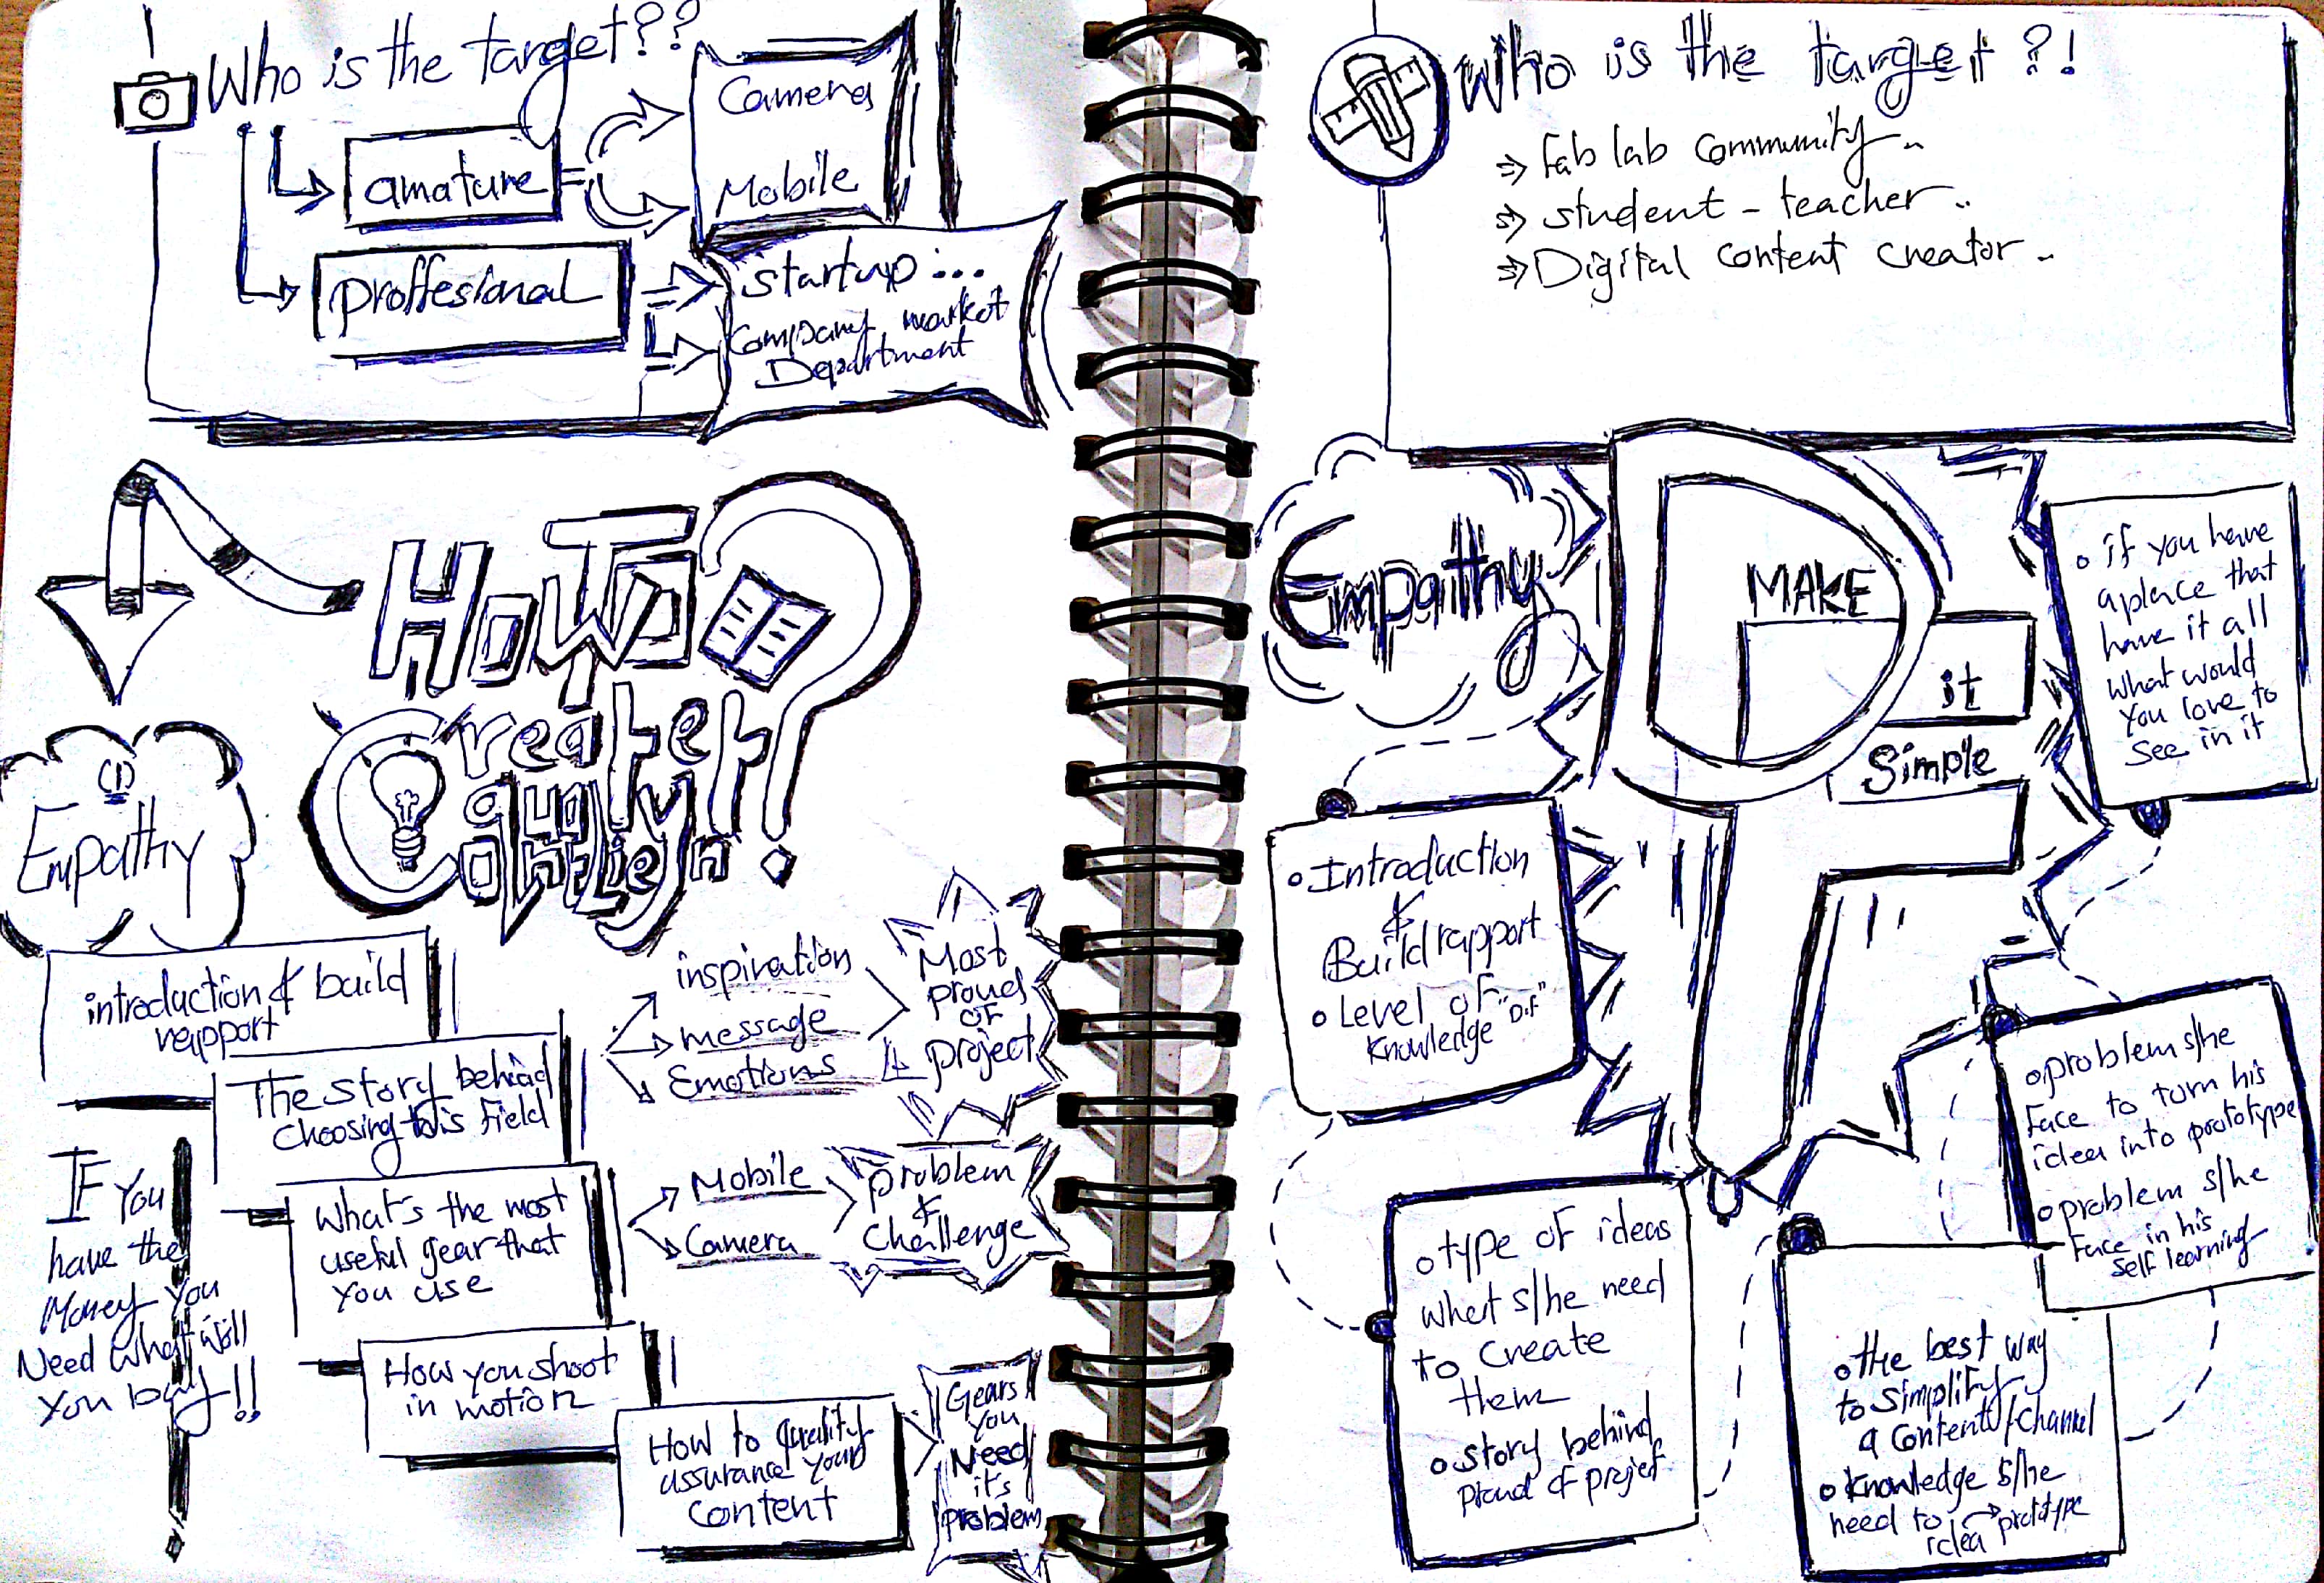 Who is the target??
amature
=
Camera
Mobile
proffesional
startup...
Company market
Department
How To
Create
Quality
Empathy
introduction & build
rapport
The story behind
choosing this field
inspiration
message
Emotions
Most
proud
OF
project
What's the most
useful gear that
you use
Mobile
Camera
problem
&
challenge
How you shoot
in motion
How to quality
assurance your
content
Gears
you
Need
it's
problem
IF You
have the
Money you
Need what will
you buy!!
Who is the target?!
Fab lab community..
student - teacher..
Digital content creator..
Empathy
MAKE
it
Simple
if you have
aplace that
have it all
what would
you love to
see in it
Introduction
&
Build rapport
Level of "Dif"
Knowledge
type of ideas
what s/he need
to create
them
story behind
proud of project
problem s/he
face to turn his
idea into prototype
problem s/he
face in his
self learning
the best way
to simplify
a content/channel
knowledge s/he
need to idea prototype